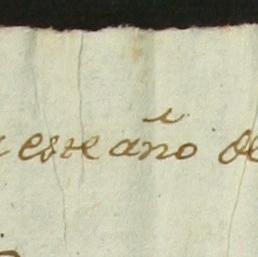 este año de